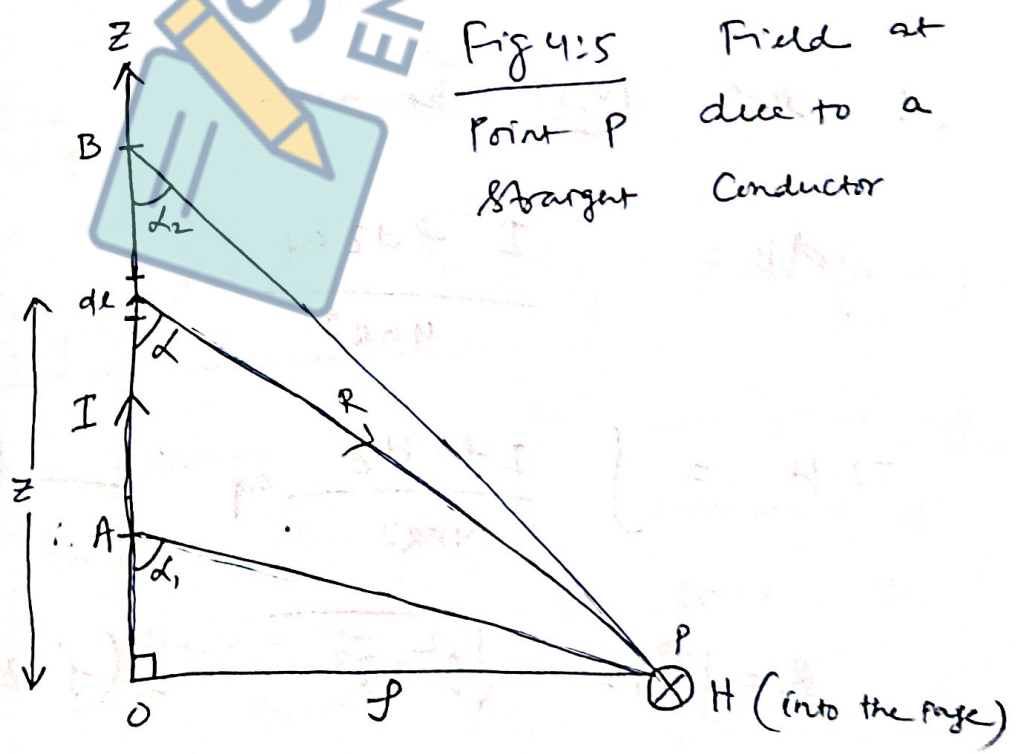 Fig 4:5 Field at
Point P due to a
Straignt Conductor
Z
B
α2
dl
α
R
I
Z
A
α1
P
H (into the page)
O
ρ